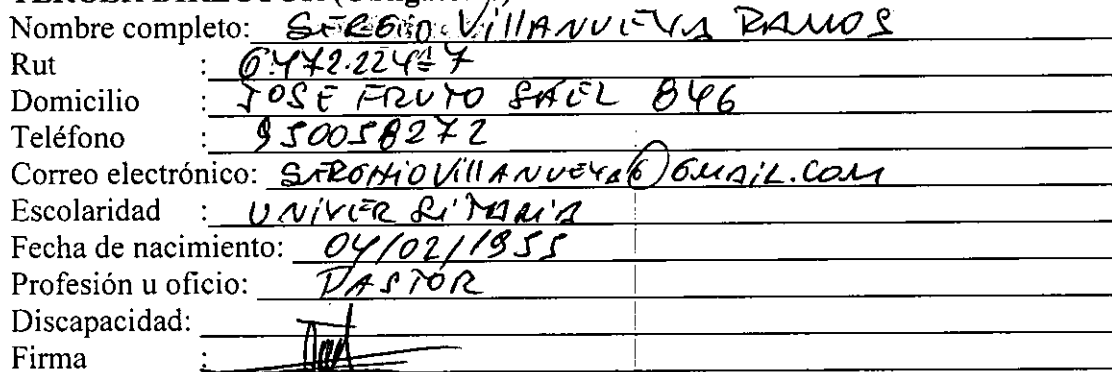 Nombre completo: SERGIO VillANUEVA RAMOS
Rut : 6.472.224-7
Domicilio : JOSE FRUTO SAEL 846
Teléfono : 950058272
Correo electrónico: @GMAiL.COM
Escolaridad : UNiVERSiTARiA
Fecha de nacimiento: 04/02/1955
Profesión u oficio: PASTOR
Discapacidad:
Firma :